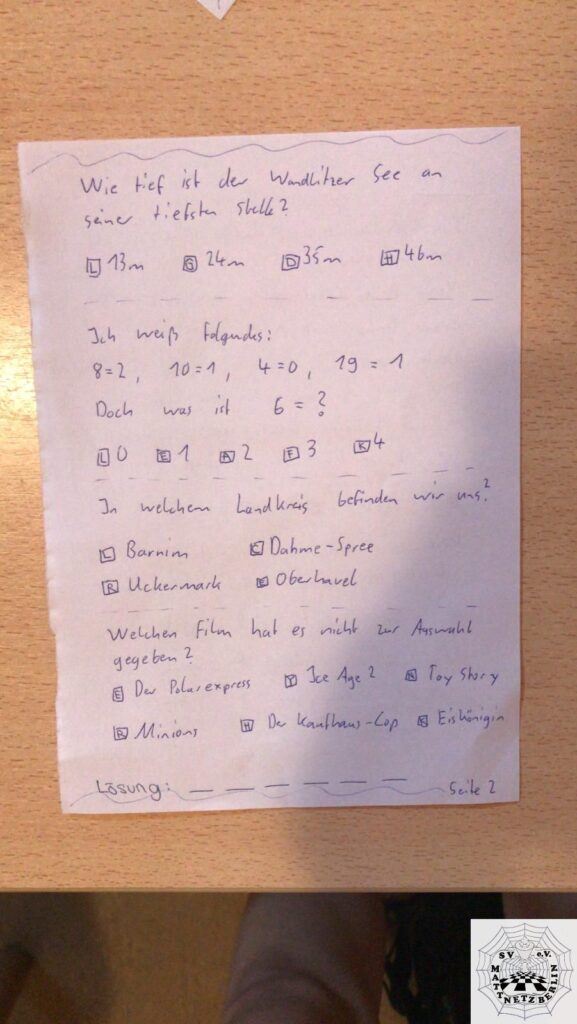 Wie tief ist der Wandlitzer See an
seiner tiefsten Stelle?
L 13m G 24m D 35m H 46m
Ich weiß folgendes:
8=2, 10=1, 4=0, 19=1
Doch was ist 6=?
L 0 E 1 A 2 F 3 K 4
In welchem Landkreis befinden wir uns?
L Barnim C Dahme-Spree
R Uckermark E Oberhavel
Welchen Film hat es nicht zur Auswahl
gegeben?
E Der Polarexpress Y Ice Age 2 N Toy Story
R Minions H Der Kaufhaus-Cop Eiskönigin
Lösung: _ _ _ _ _ _ Seite 2
SV e.V.
MATTNETZ BERLIN